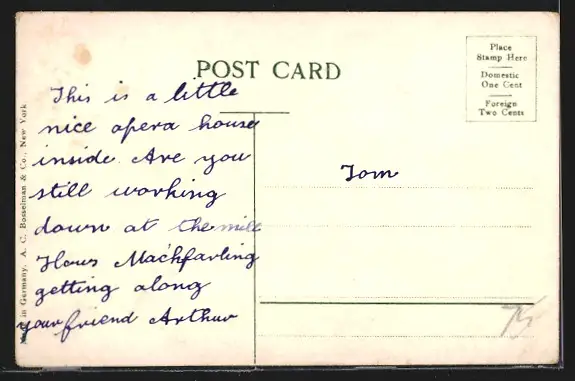 POST CARD
Place
Stamp Here
Domestic
One Cent
Foreign
Two Cents
This is a little
nice opera house
inside. Are you
still working
down at the mill
Hows Mackfarling
getting along
your friend Arthur
Tom
in Germany. A. C. Bosselman & Co., New York